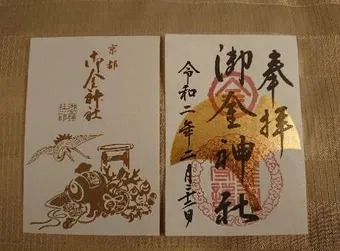 京都
御金神社
奉拝
御金神社
令和二年二月二十二日